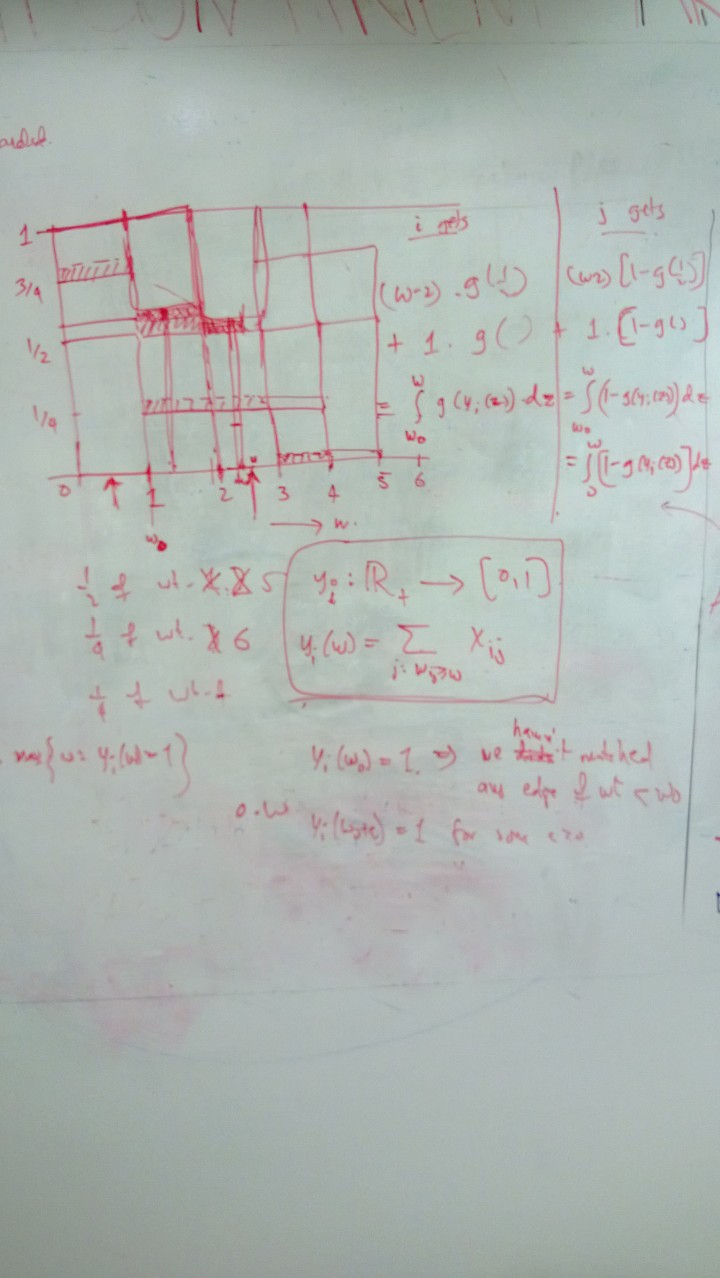 1
3/4
1/2
1/4
0 1 2 3 4 5 6
w₀
→ w.
i gets
(w-2) . g( )
+ 1. g( )
= ∫ w₀ w g(yᵢ(z)) dz
j gets
(w-2) [1-g( )]
+ 1. [1-g( )]
= ∫ w₀ w (1-g(yᵢ(z))) dz
= ∫ 0 w [1-g(yᵢ(z))] dz
1/2 of wt. 5
1/4 of wt. 6
1/4 of wt.
yᵢ : ℝ₊ → [0,1]
yᵢ(w) = ∑ j: wᵢⱼ≥w xᵢⱼ
max{w: yᵢ(w)=1}
yᵢ(w₀) = 1. ⇒ we haven't matched
any edge of wt < w₀
o.w yᵢ(w₀+ε) = 1 for some ε>0